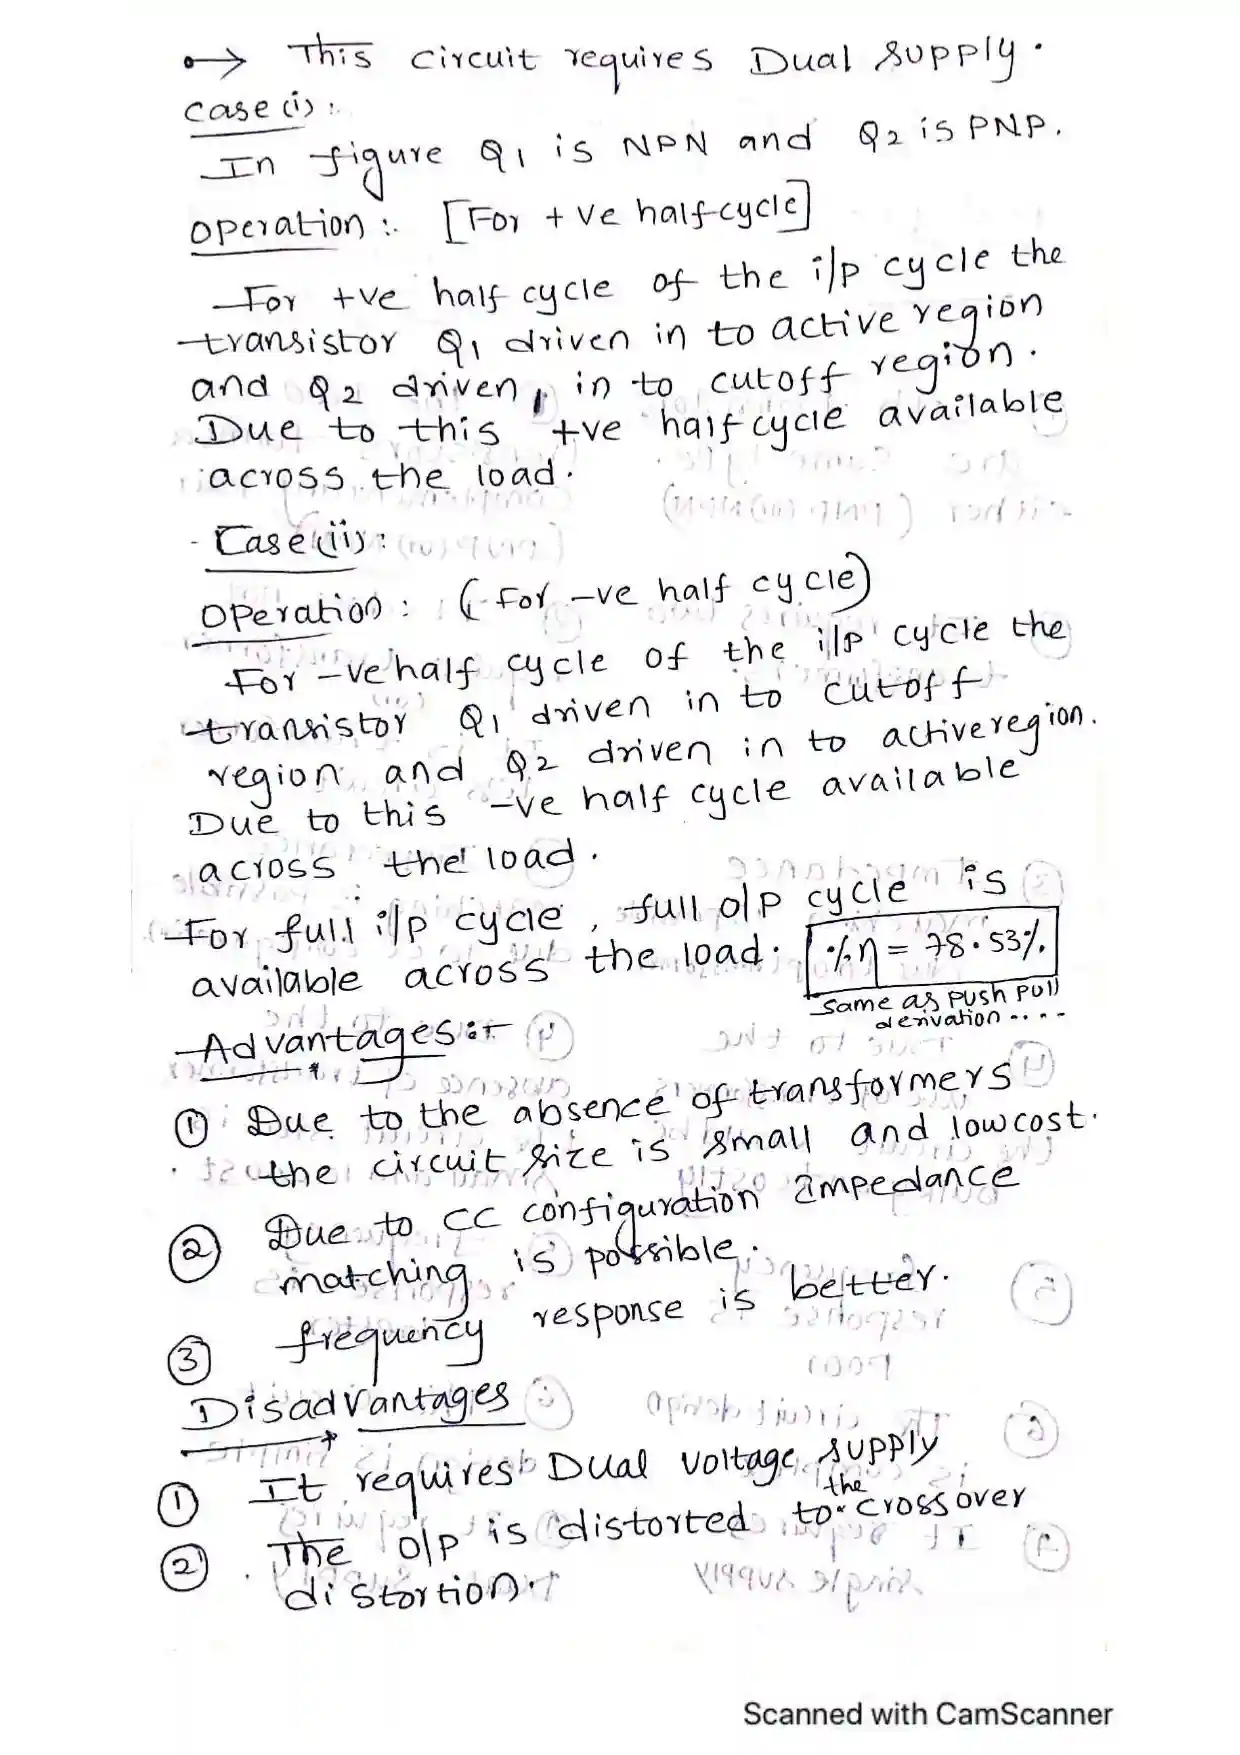 → This circuit requires Dual supply.
case (i) :
In figure Q1 is NPN and Q2 is PNP.
operation :. [For +ve half-cycle]
For +ve half cycle of the i/p cycle the
transistor Q1 driven in to active region
and Q2 driven in to cutoff region.
Due to this +ve half cycle available
across the load.
Case (ii) :
Operation : (For -ve half cycle)
For -ve half cycle of the i/p cycle the
transistor Q1 driven in to cutoff
region and Q2 driven in to active region.
Due to this -ve half cycle available
across the load.
For full i/p cycle, full o/p cycle is
available across the load. %η = 78.53%
same as push pull
derivation ....
Advantages :-
① Due to the absence of transformers
the circuit size is small and low cost.
② Due to CC configuration impedance
matching is possible.
③ frequency response is better.
Disadvantages
① It requires Dual voltage supply
② The o/p is distorted to the crossover
distortion.
Scanned with CamScanner